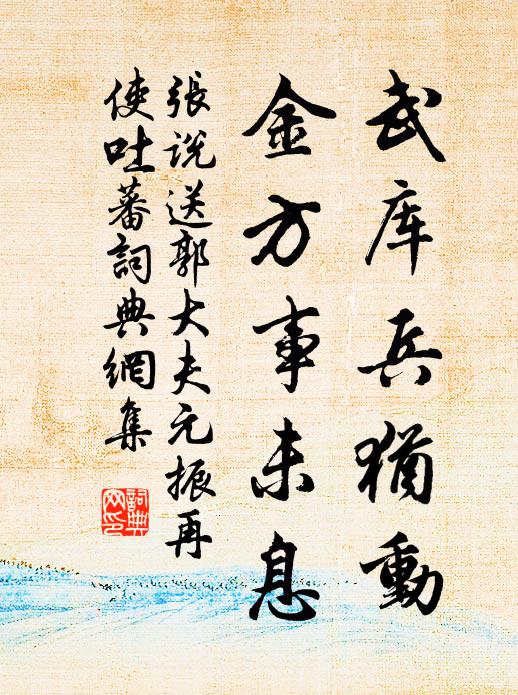 武库兵猶動
金方事未息
張説送郭大夫元振再
使吐蕃詞典網集
詞典
网印